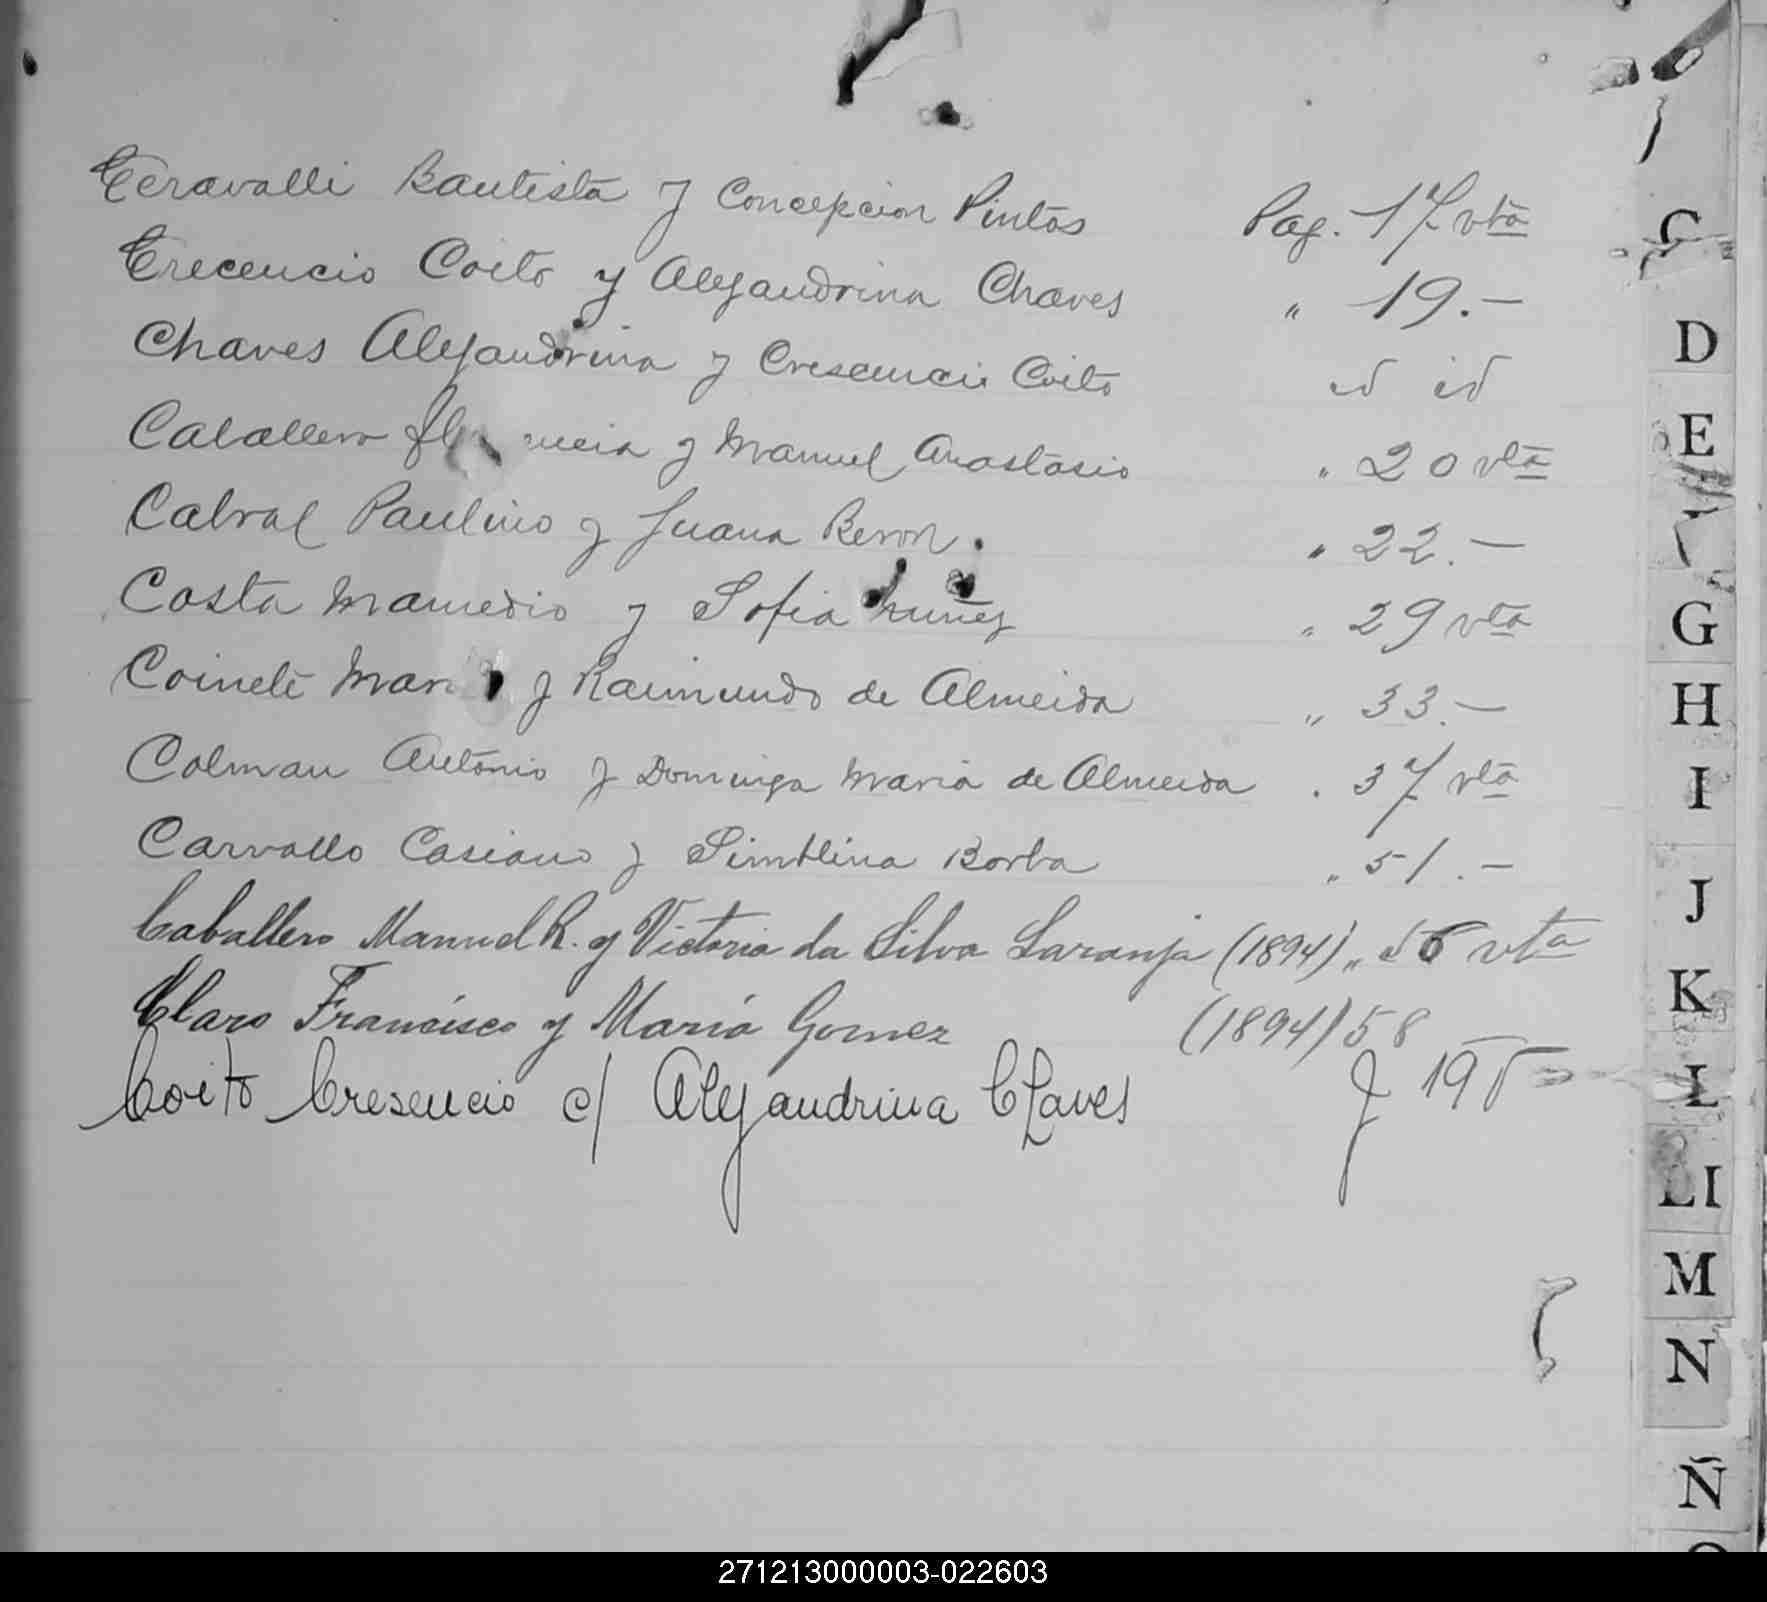 Ceravalli Bautista y Concepcion Pintos Pag. 17 vta
Crecencio Coito y Alejandrina Chaves " 19.-
Chaves Alejandrina y Crescencio Coito id id
Caballero y Manuel Anastasio " 20 vta
Cabral Paulino y Juana Beron. " 22.-
Costa Mamedio y Sofia Nuñez " 29 vta
Coinete y Raimundo de Almeida " 33.-
Colman Antonio y Dominga Maria de Almeida " 37 vta
Carvallo Casiano y Simblina Borba " 51.-
Caballero Manuel R. y Victoria da Silva Laranja (1894) " 56 vta
Claro Francisco y María Gomez (1894) 58
Coito Cresencio c/ Alejandrina Chaves
C
D
E
G
H
I
J
K
L
LI
M
N
Ñ
271213000003-022603